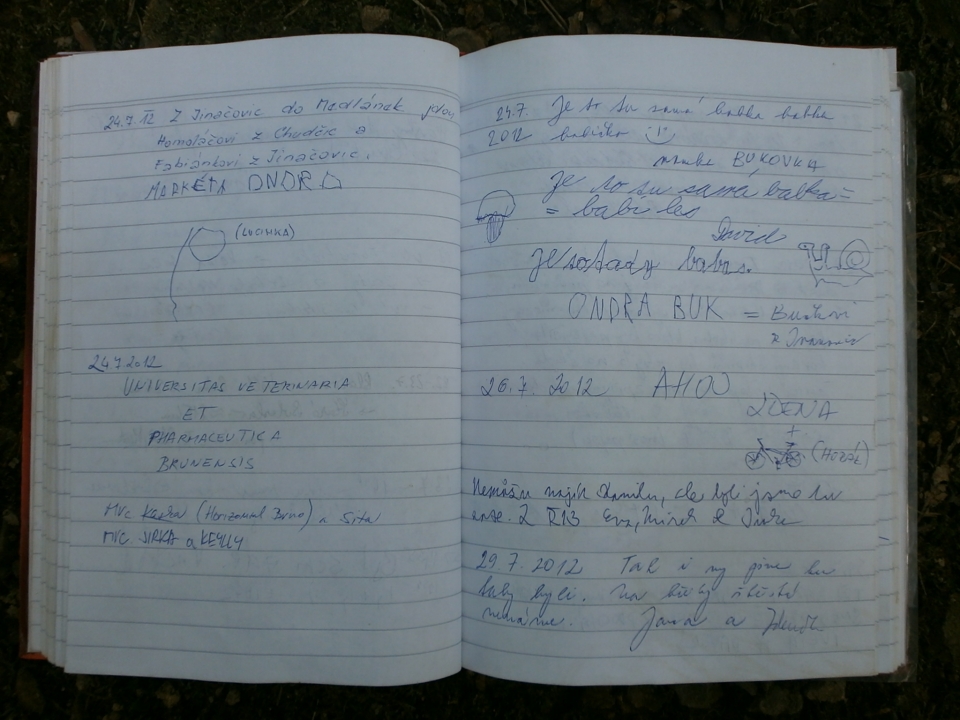 24.7.12 Z Jinačovic do Medlánek jdou
Homoláčovi z Chudčic a
Fabiánkovi z Jinačovic.
MARKÉTA ONDRA
(LUCINKA)
24.7.2012
UNIVERSITAS VETERINARIA
ET
PHARMACEUTICA
BRUNENSIS
MVc (Horizontal Brno) a Sita
MVc JIRKA a KEYLLY
24.7. Je to tu samá babka babka
2012 babička :)
BUKOVKA
Je to tu samá babka=
= babí les
David
je to tady babí.
ONDRA BUK = Bučkovi
z
26.7. 2012 AHOJ
ZDENA
+
(Horák)
Nemůžu najít, ale byli jsme tu
Z Eva, Mirek &
29.7.2012 Tak i my jsme tu
taky byli. na štěstí
nemáme. Jana a Zdeněk